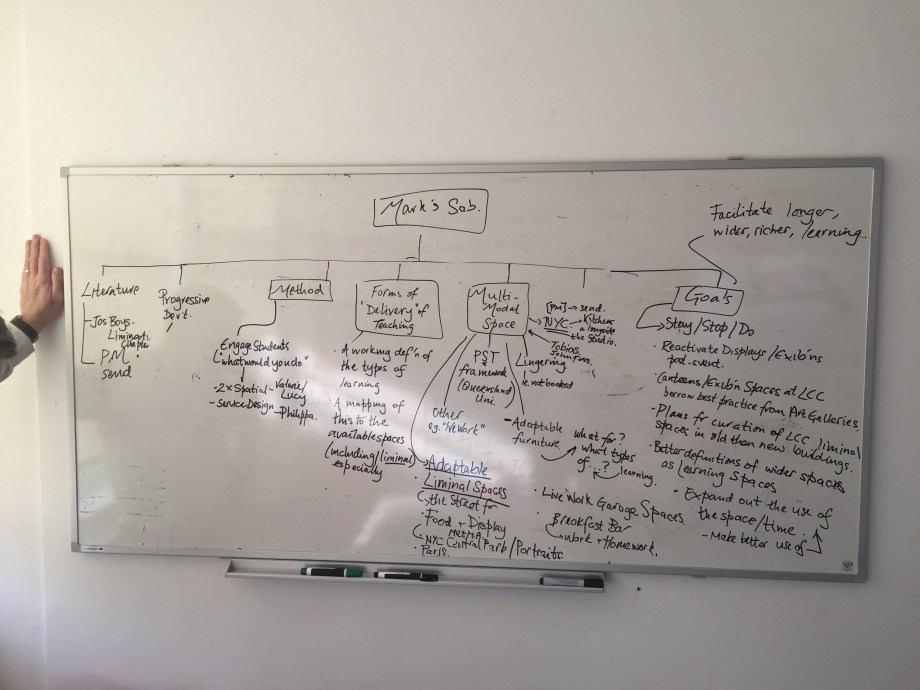 Mark's Sab.
Facilitate longer,
wider, richer, learning
Literature
- Jos Boys.
Liminality
Chapter
P.M.
send
Progressive
Dev't.
Method
Engage Students
"what would you do"
- 2 x Spatial - Valerie/
Lucy
- Service Design - Philippa.
Forms of
"Delivery" of
Teaching
· A working def'n of
the types of
learning
· A mapping of
this to the
available spaces
(including/liminal)
especially
Multi-
Modal
Space
[PM] → send.
NYC - Kitchens
alongside
the Studio.
Tobias
PST
framework
(Queensland
Uni.
Lingering
ie. not booked
Other
eg. "WeWork"
- Adaptable
furniture
what for?
what types
of ..?
learning.
→ Adaptable
· Liminal Spaces
the Street for
· Food + Display
NYC Central Park/Portraits
· Paris.
· Live Work Garage Spaces
· Breakfast Bar
work + Homework.
Goals
→ Stay/Stop/Do
· Reactivate Displays/Exib'ns
post-event.
· Canteens/Exib'n Spaces at LCC
borrow best practice from Art Galleries.
· Plans for curation of LCC liminal
spaces in old then new buildings.
· Better definitions of wider spaces
as learning spaces
· Expand out the use of
the space/time.
- Make better use of